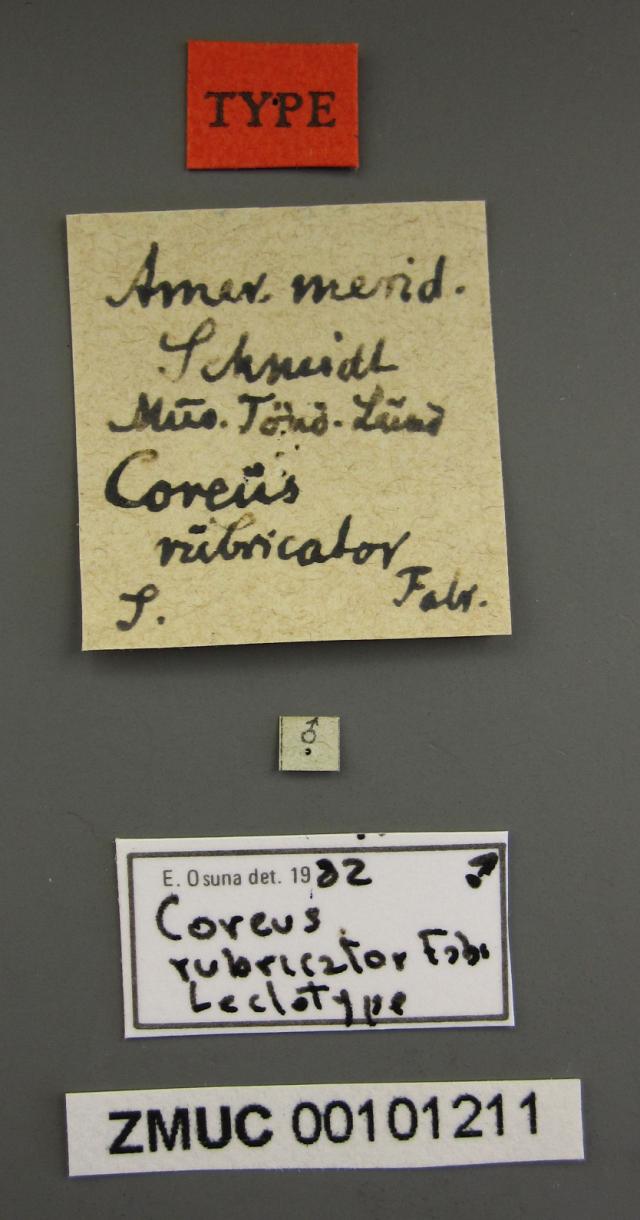 TYPE
Amer. merid.
Schmidt
Mus. Tönd. Lund
Coreus
rubricator
S. Fabr.
♂
E. Osuna det. 1982 ♂
Coreus
rubricator Fab.
Lectotype
ZMUC 00101211